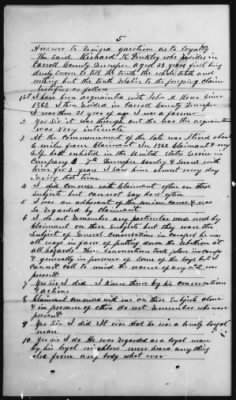 5
Answer to revised question as to loyalty
The said Richard H. Pinkley who resides in
Carroll County Tennessee aged 33 years first being
duly sworn to tell the truth the whole truth and
nothing but the truth relative to the foregoing claim
testifies as follows
1st I have been acquainted with John M. since
1862 I then resided in Carroll County Tennessee
I was then 21 years of age I was a farmer
2 Yes sir it was through out the war the acquaintance
was very intimate
3 At the commencement of the late war I lived about
6 miles from Claimant In 1862 Claimant & my
self both enlisted in the United States Service
Company B 7th Tennessee Cavalry & served with
him for 3 years I saw him almost every day
during that time
4 I did converse with Claimant often on those
subjects but cannot say do often
5 I was an adherent of the union cause & was
so regarded by Claimant
6 I do not remember any particular words used by
Claimant on these subjects but they were the
subject of our conversations in camps he was
all ways in favor of putting down the rebellion at
all hazards these conversations took place in camps
& generally in presence of some of the boys but I
cannot call to mind the name of any in
present
7 Yes sir I did I knew them by his conversations
& actions
8 Claimant conversed with me on these subjects alone
& in presence of others do not remember who was
present
9 Yes sir I did that he was a truly loyal
man
10 Yes sir I do He was regarded as a loyal man
by his loyal neighbors never heard any thing
else from any body what ever